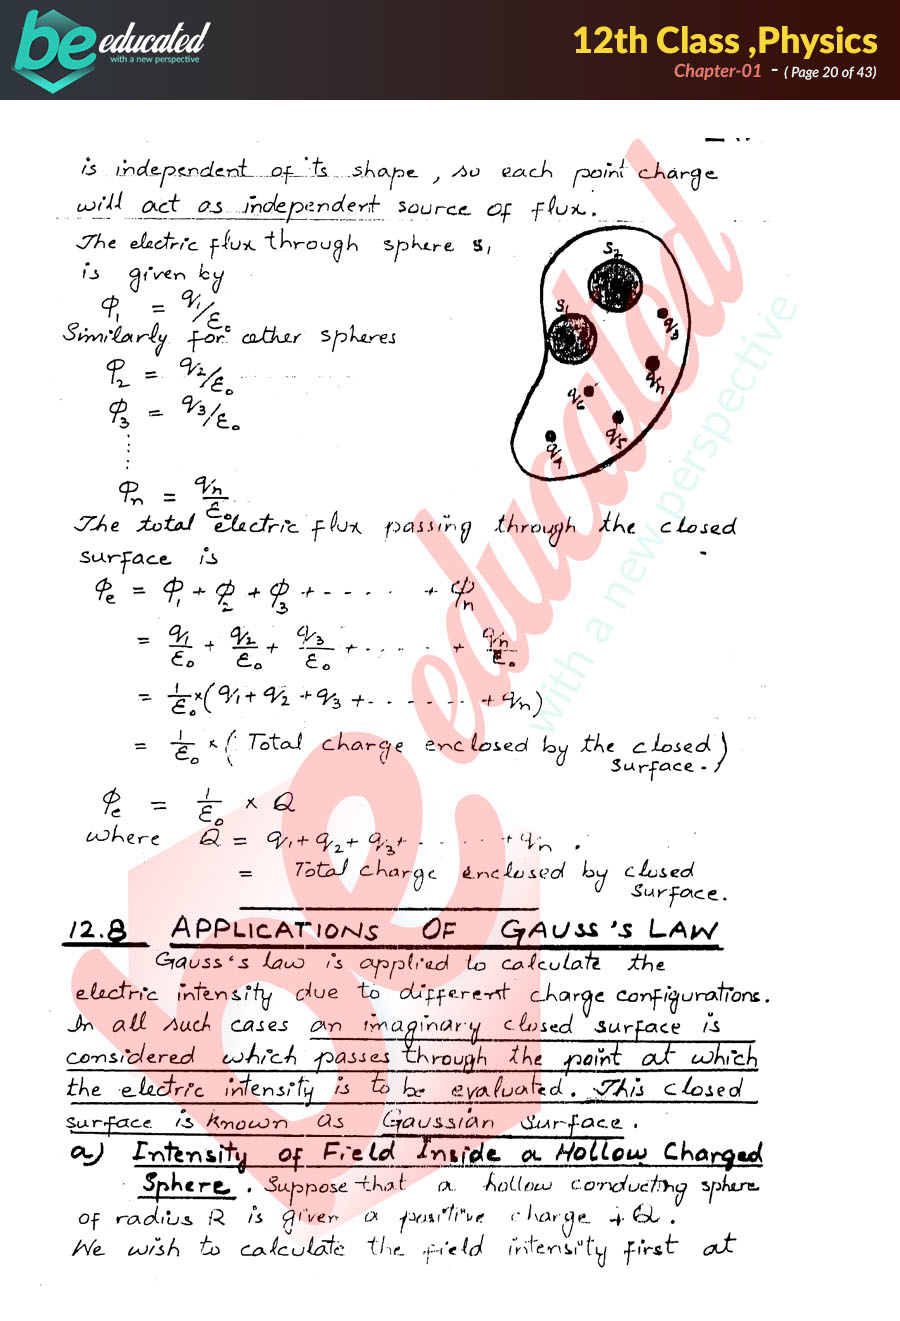 be educated
with a new perspective
12th Class ,Physics
Chapter-01 - ( Page 20 of 43)
is independent of its shape, so each point charge
will act as independent source of flux.
The electric flux through sphere S₁
is given by
Φ₁ = q₁/ε₀
Similarly for other spheres
Φ₂ = q₂/ε₀
Φ₃ = q₃/ε₀
Φn = qn/ε₀
S₂
S₁
q₃
qn
q₆
q₅
q₄
The total electric flux passing through the closed
surface is
Φe = Φ₁ + Φ₂ + Φ₃ + ----- + Φn
= q₁/ε₀ + q₂/ε₀ + q₃/ε₀ + ..... + qn/ε₀
= 1/ε₀ × (q₁ + q₂ + q₃ + ------ + qn)
= 1/ε₀ × ( Total charge enclosed by the closed
surface.)
Φe = 1/ε₀ × Q
where Q = q₁ + q₂ + q₃ + ----- + qn .
= Total charge enclosed by closed
surface.
12.8 APPLICATIONS OF GAUSS'S LAW
Gauss's law is applied to calculate the
electric intensity due to different charge configurations.
In all such cases an imaginary closed surface is
considered which passes through the point at which
the electric intensity is to be evaluated. This closed
surface is known as Gaussian Surface.
a) Intensity of Field Inside a Hollow Charged
Sphere. Suppose that a hollow conducting sphere
of radius R is given a positive charge +Q.
We wish to calculate the field intensity first at
be educated
with a new perspective